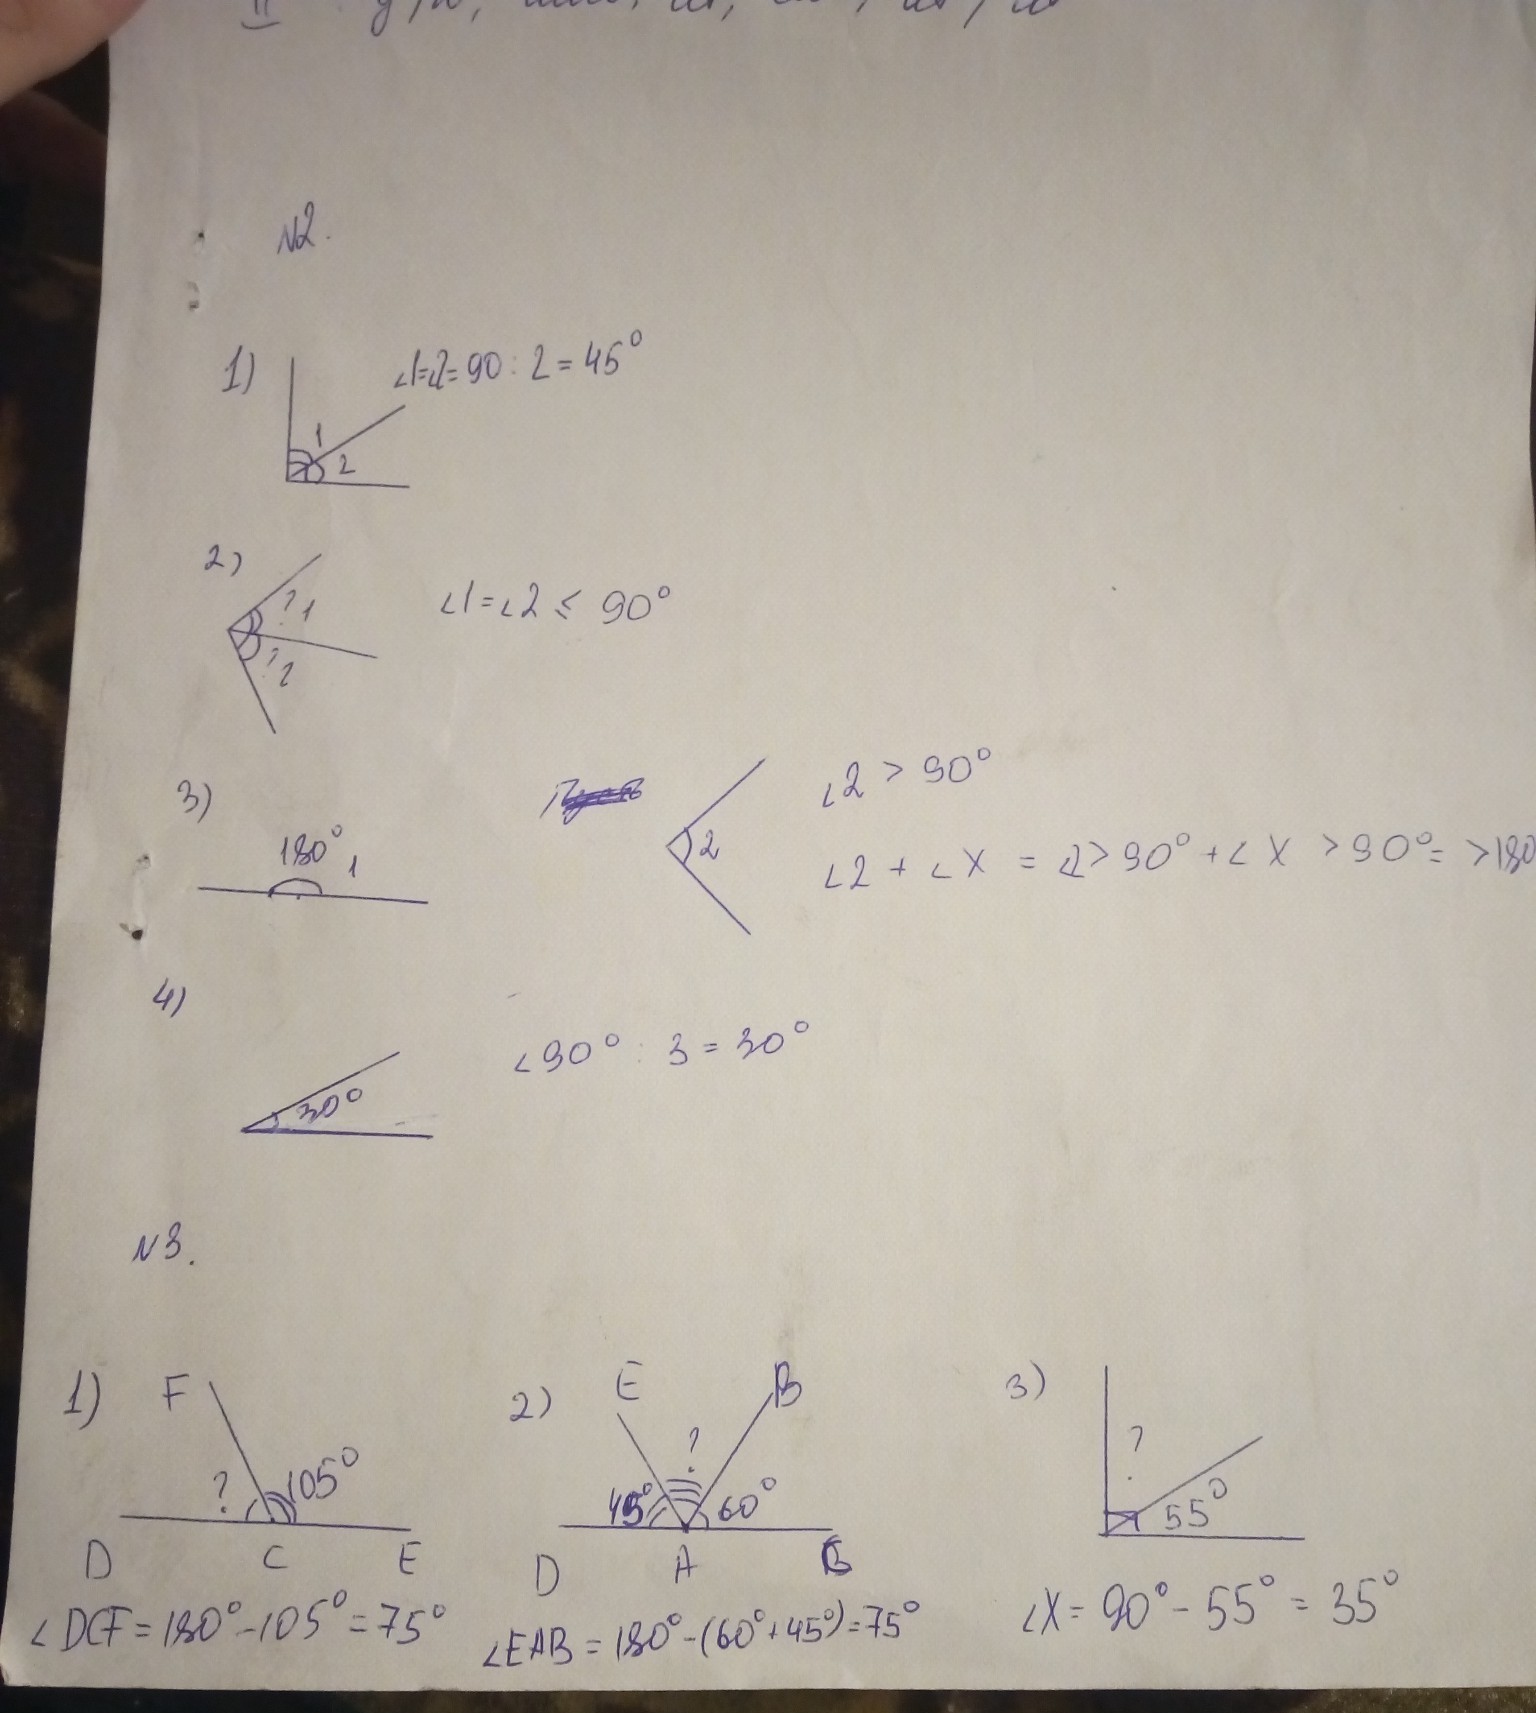 II
№2.
1) ∠1=∠2=90:2=45°
1
2
2)
?1
?2
∠1=∠2 ≤ 90°
3)
180° 1
2
∠2 > 90°
∠2 + ∠X = ∠2>90° + ∠X >90°= >180
4)
30°
∠90° : 3 = 30°
№3.
1) F
? 105°
D C E
∠DCF = 180°-105°=75°
2) E B
?
45° 60°
D A C
∠EAB = 180°-(60°+45°)=75°
3)
?
55°
∠X= 90°- 55° = 35°